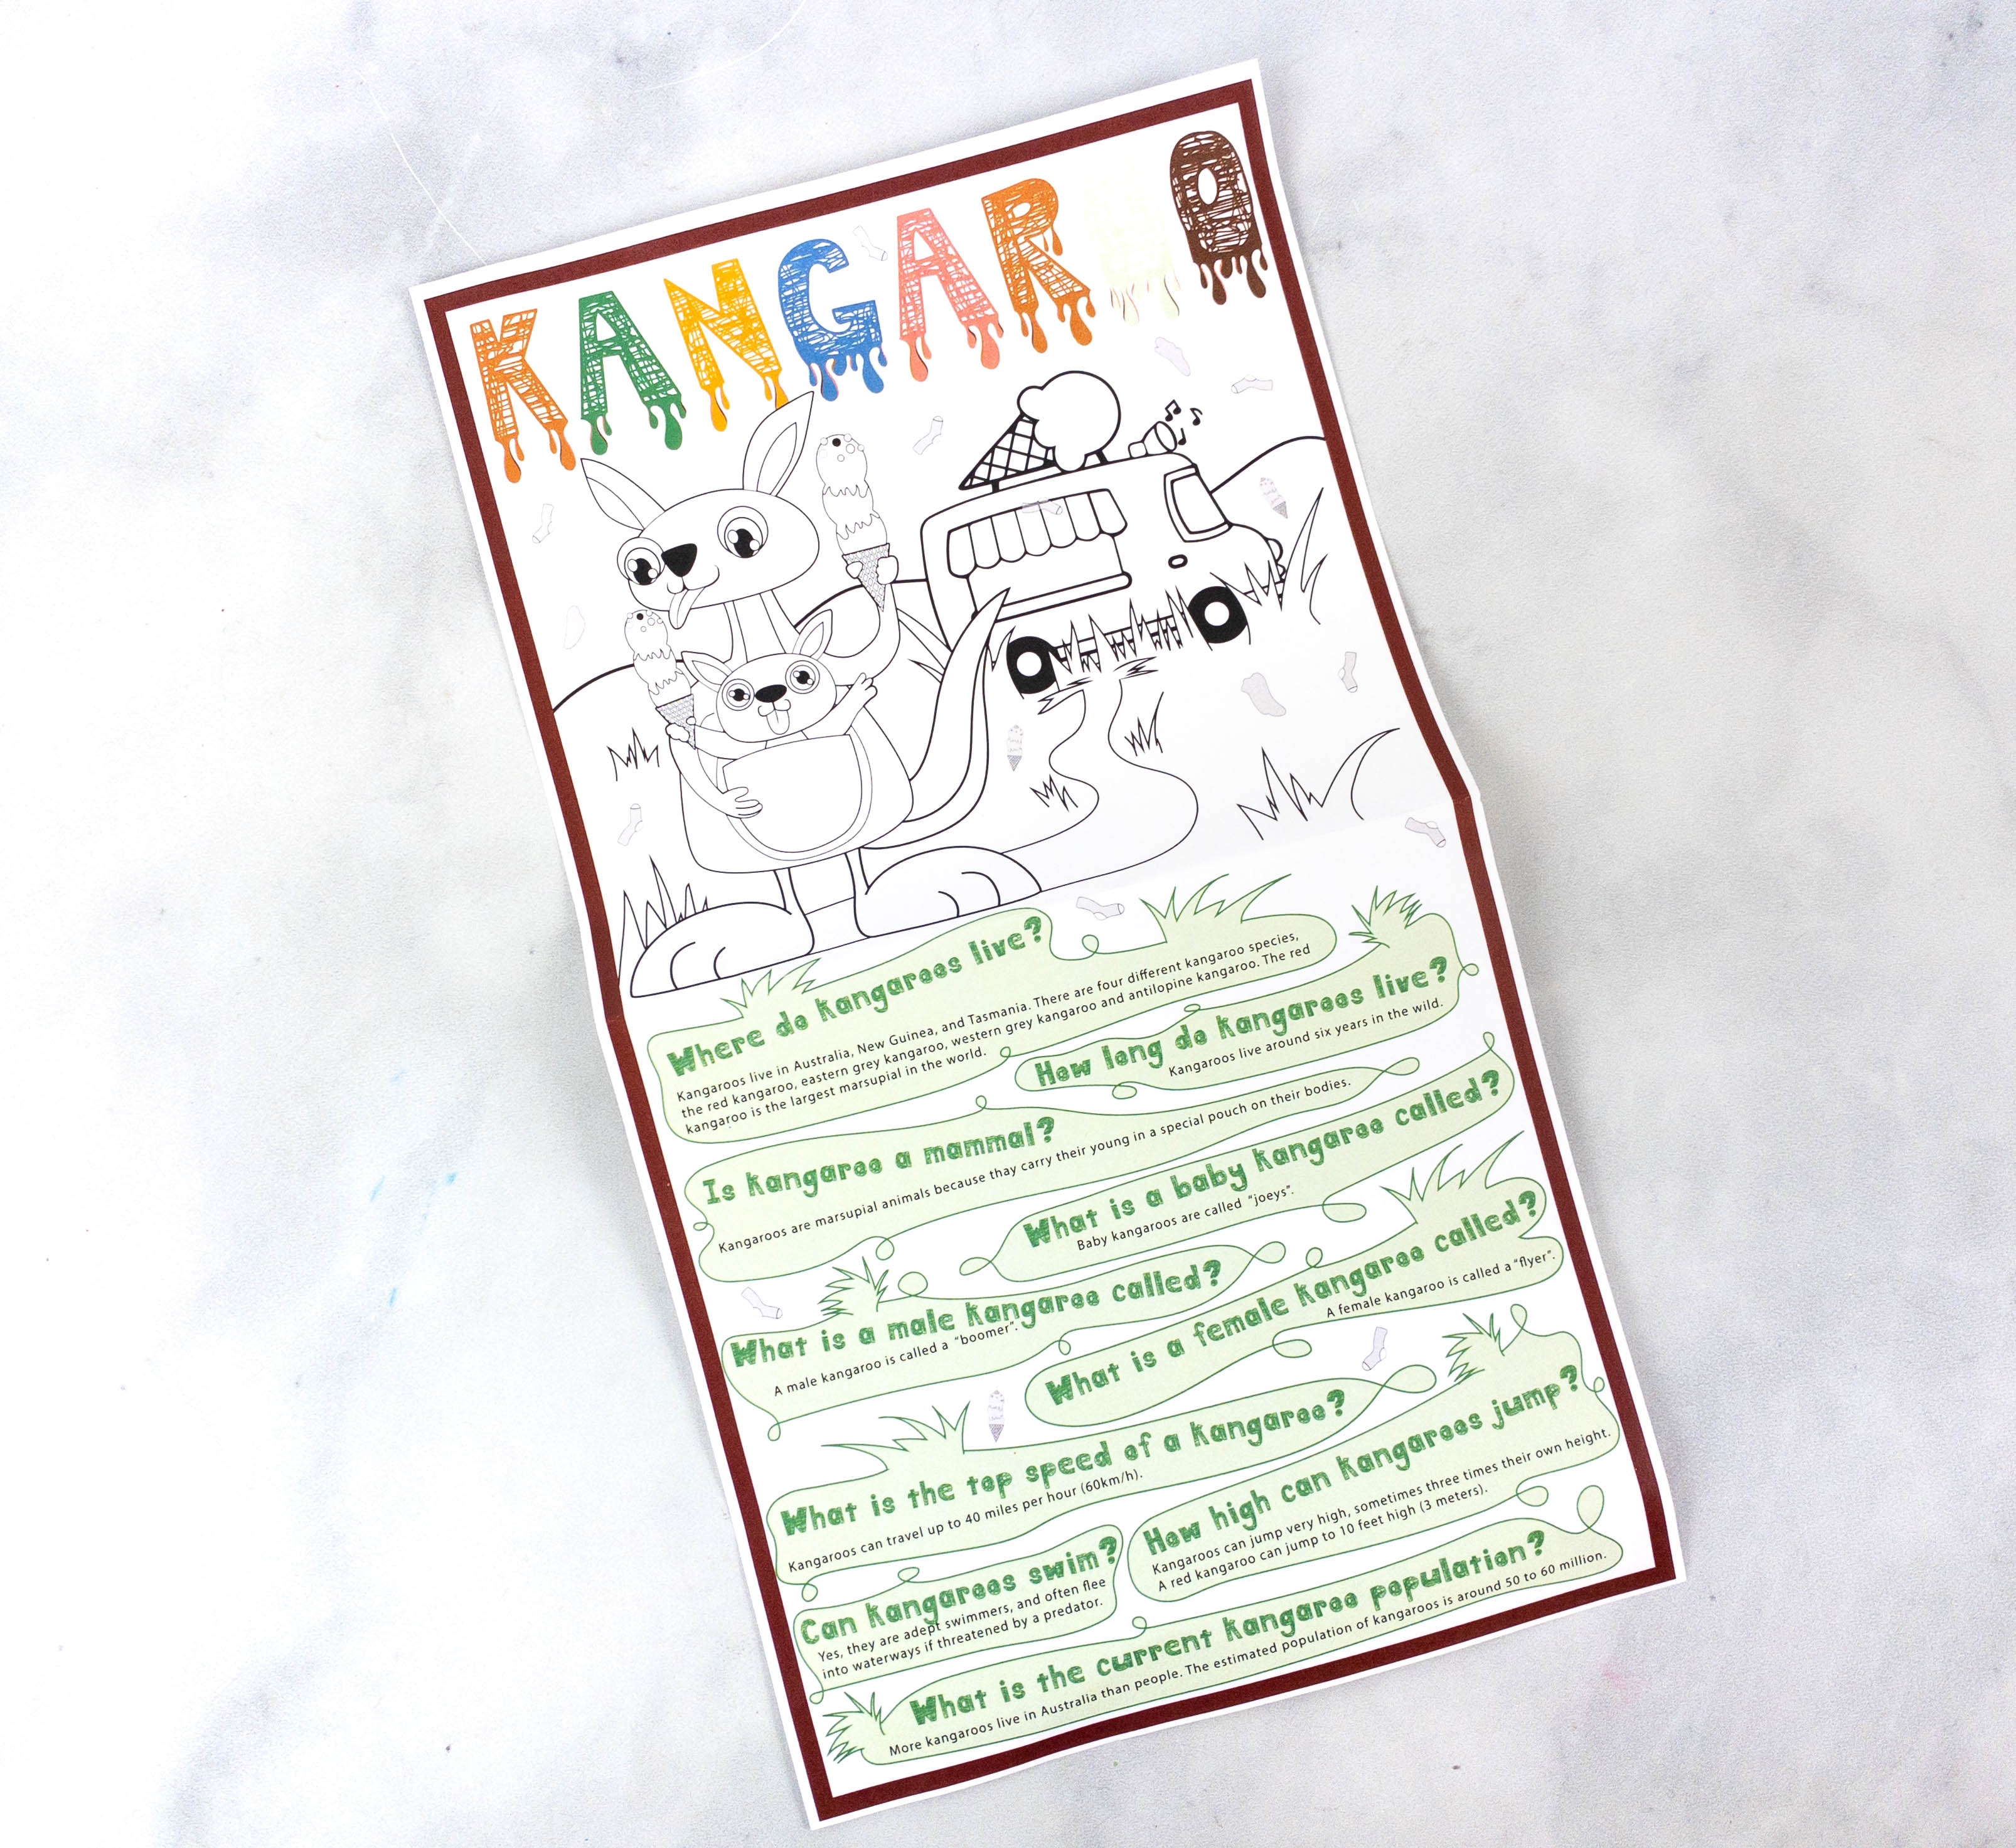 KANGAROO
Where do kangaroos live?
Kangaroos live in Australia, New Guinea, and Tasmania. There are four different kangaroo species,
the red kangaroo, eastern grey kangaroo, western grey kangaroo and antilopine kangaroo. The red
kangaroo is the largest marsupial in the world.
How long do kangaroos live?
Kangaroos live around six years in the wild.
Is kangaroo a mammal?
Kangaroos are marsupial animals because thay carry their young in a special pouch on their bodies.
What is a baby kangaroo called?
Baby kangaroos are called "joeys".
What is a male kangaroo called?
A male kangaroo is called a "boomer".
What is a female kangaroo called?
A female kangaroo is called a "flyer".
What is the top speed of a kangaroo?
Kangaroos can travel up to 40 miles per hour (60km/h).
How high can kangaroos jump?
Kangaroos can jump very high, sometimes three times their own height.
A red kangaroo can jump to 10 feet high (3 meters).
Can kangaroos swim?
Yes, they are adept swimmers, and often flee
into waterways if threatened by a predator.
What is the current kangaroo population?
More kangaroos live in Australia than people. The estimated population of kangaroos is around 50 to 60 million.